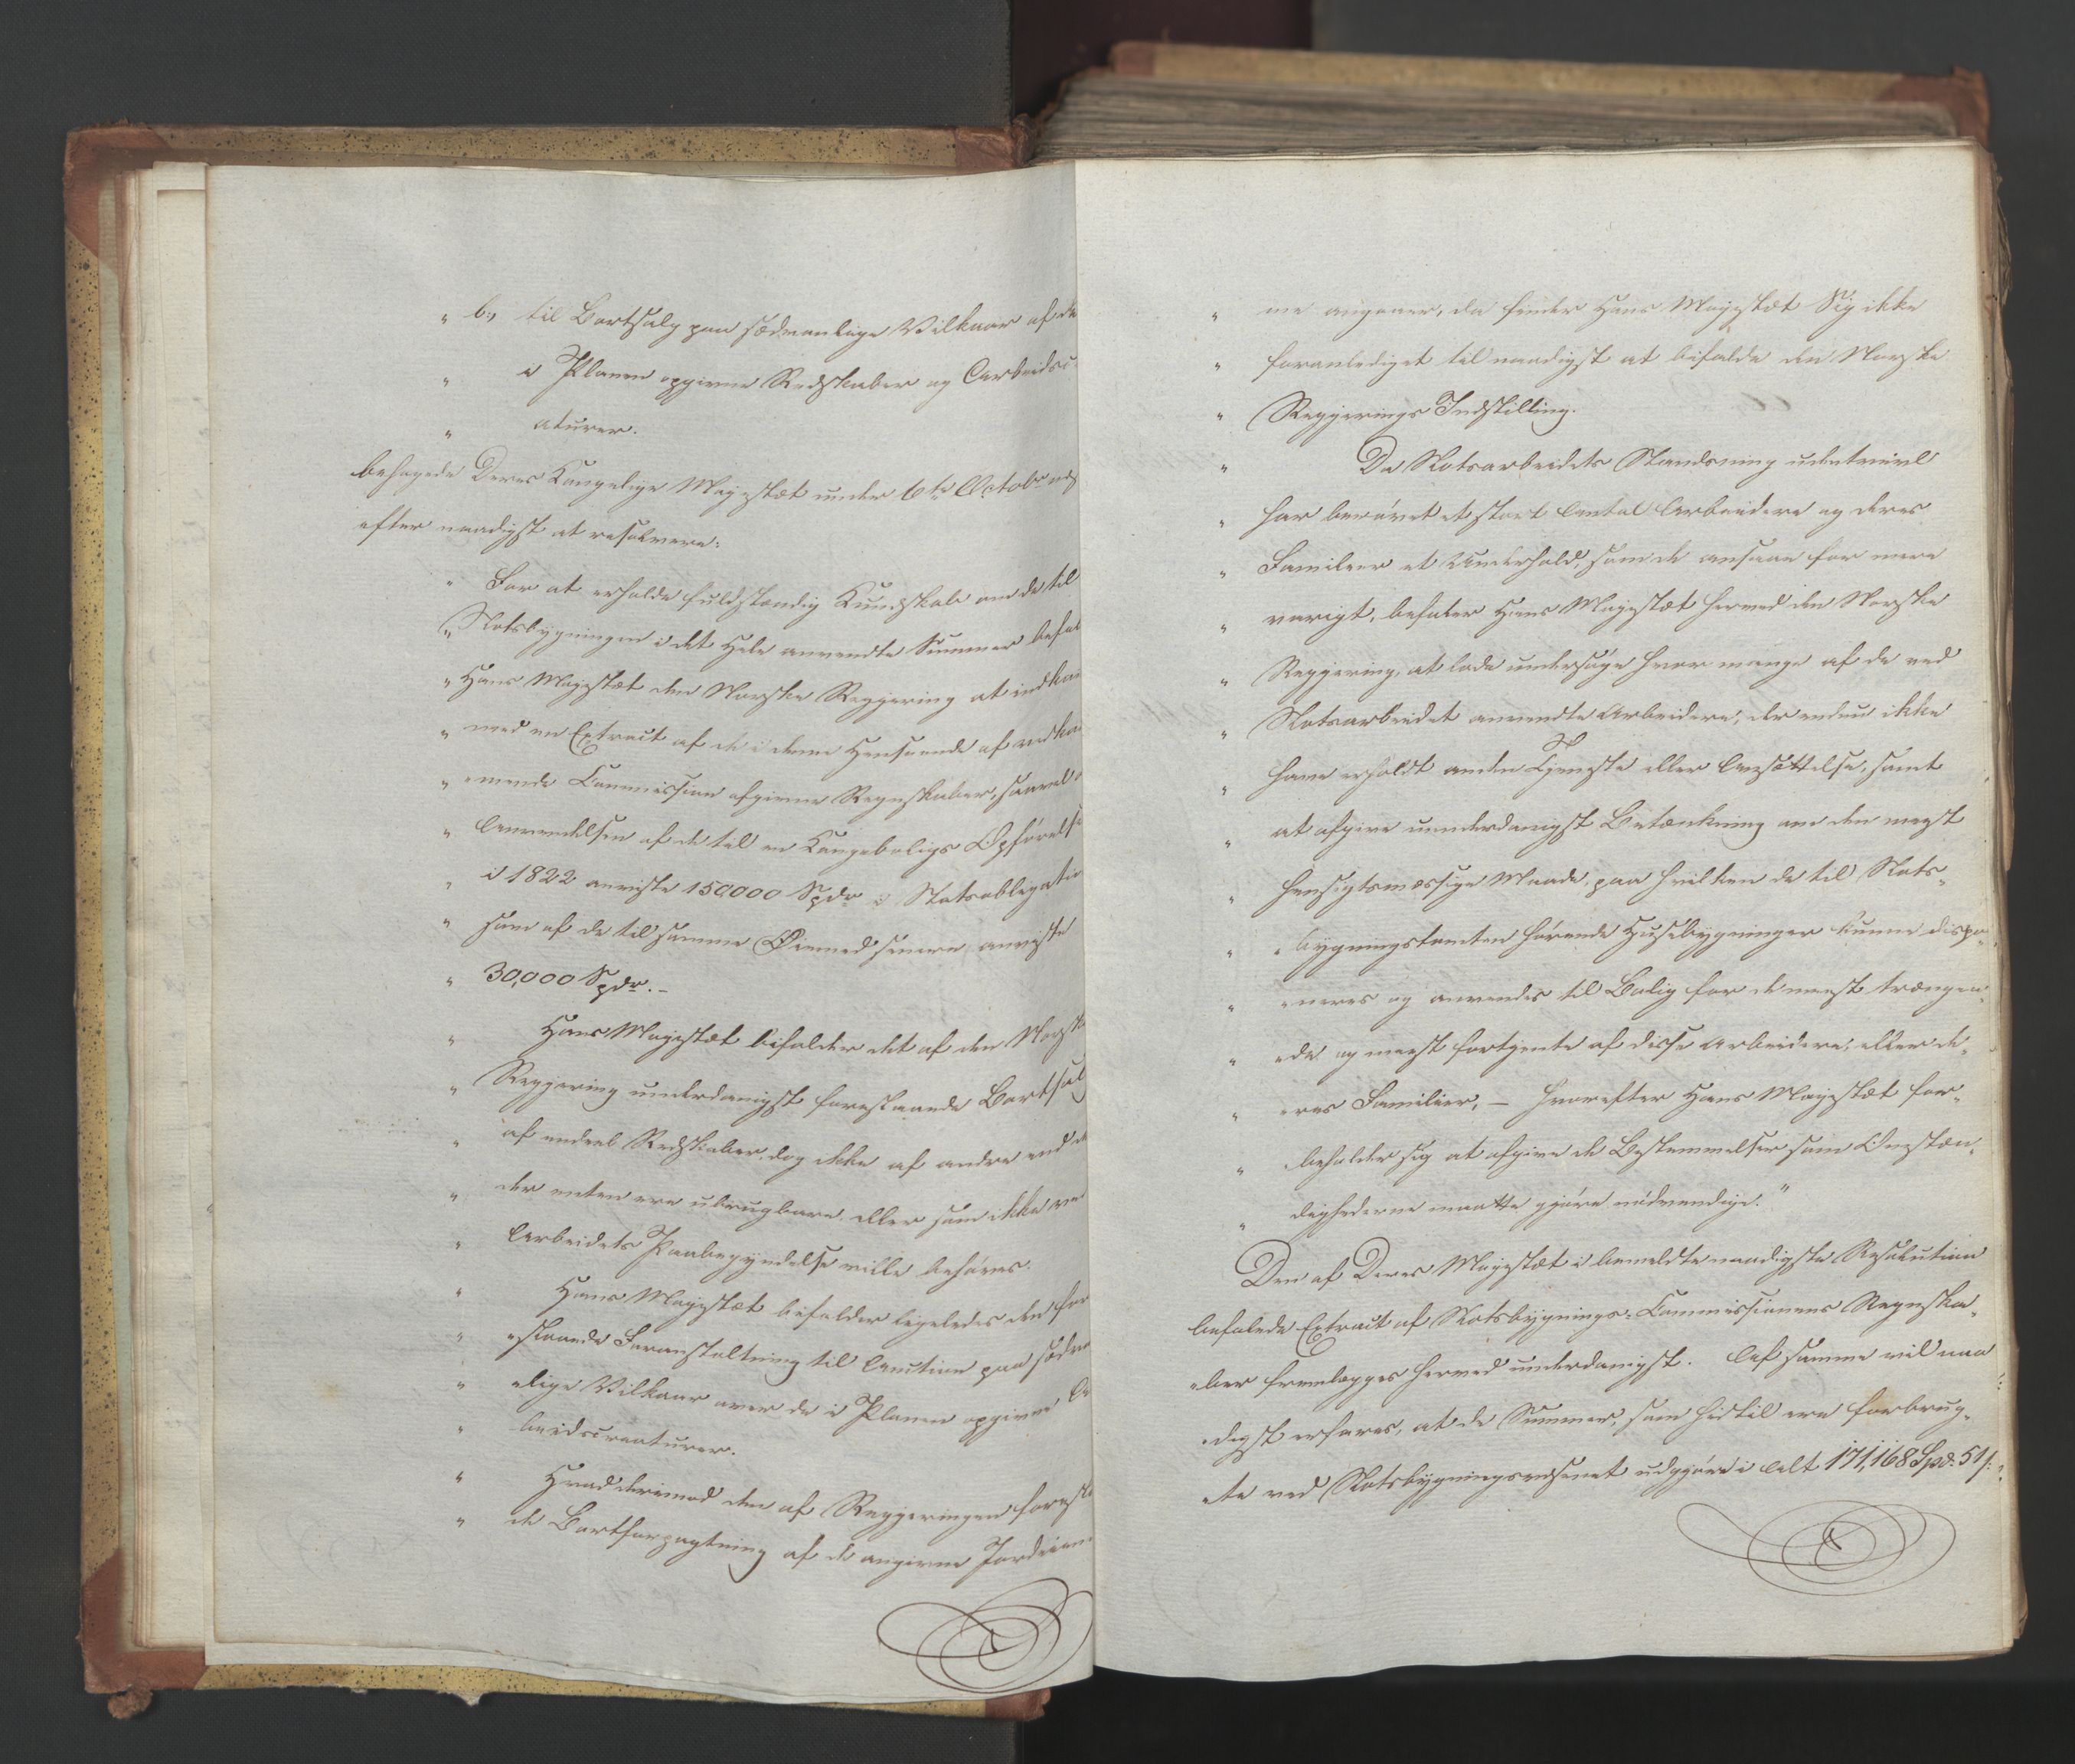 " b, til Bortsalg paa sædvanlige Vilkaar af de
" i Planen opgivne Redskaber og Arbeidscre-
" aturer.
behagede Deres Kongelige Majestæt under 6te Octobr nest
efter naadigst at resolvere:
" For at erholde fuldstændig Kundskab om de til
" Slotsbygningen i det Hele anvendte Summer befal
" Hans Majestæt den Norske Regjering at indkom
" med en Extract af de i denne Henseende af vedkom
" mende Commission afgivne Regnskaber, saavel o
" Anvendelsen af de til en Kongeboligs Opførelse
" i 1822 anviste 150000 Spdr i Statsobligatio
" som af de til samme Øiemed senere anviste
" 30,000 Spdr. –
" Hans Majestæt bifalder det af den Norske
" Regjering underdanigst foreslaaede Bortsalg
" af endeel Redskaber, dog ikke af andre end de
" der enten ere ubrugbare eller som ikke ved
" Arbeidets Paabegyndelse ville behøves.
" Hans Majestæt bifalder ligeledes den for
" eslaaede Foranstaltning til Auction paa sædvan
" elige Vilkaar over de i Planen opgivne Ar
" beidscreaturer.
" Hvad derimod den af Regjeringen foresla
" de Bortforpagtning af de angivne Jordeien
" me angaaer, da finder Hans Majestæt Sig ikke
" foranlediget til naadigst at bifalde den Norske
" Regjerings Indstilling.
" Da Slotsarbeidets Standsning udentvivl
" har berøvet et stort Antal Arbeidere og deres
" Familier et Underhold, som de ansaae for mere
" varigt, befaler Hans Majestæt hermed den Norske
" Regjering, at lade undersøge hvor mange af de ved
" Slotsarbeidet anvendte Arbeidere, der endnu ikke
" have erholdt anden Tjeneste eller Ansættelse, samt
" at afgive underdanigst Betænkning om den meest
" hensigtsmæssige Maade, paa hvilken de til Slots-
" bygningstomten hørende Huusebygninger kunne dispo-
" neres og anvendes til Bolig for de meest trængen-
" ede og meest fortjente af disse Arbeidere, eller de-
" eres Familier, – hvorefter Hans Majestæt for-
" beholder sig at afgive de Bestemmelser som Omstæn-
" dighederne maatte gjøre nødvendige."
Den af Deres Majestæt i bemeldte naadigste Resolution
befalede Extract af Slotsbygnings-Commissionens Regnska-
ber fremlægges hermed underdanigst. Af samme vil naa
digst erfares, at de Summer, som hidtil ere forbrug-
te ved Slotsbygningsvæsenet udgjøre i Alt 171,168 Spd: 51 s: